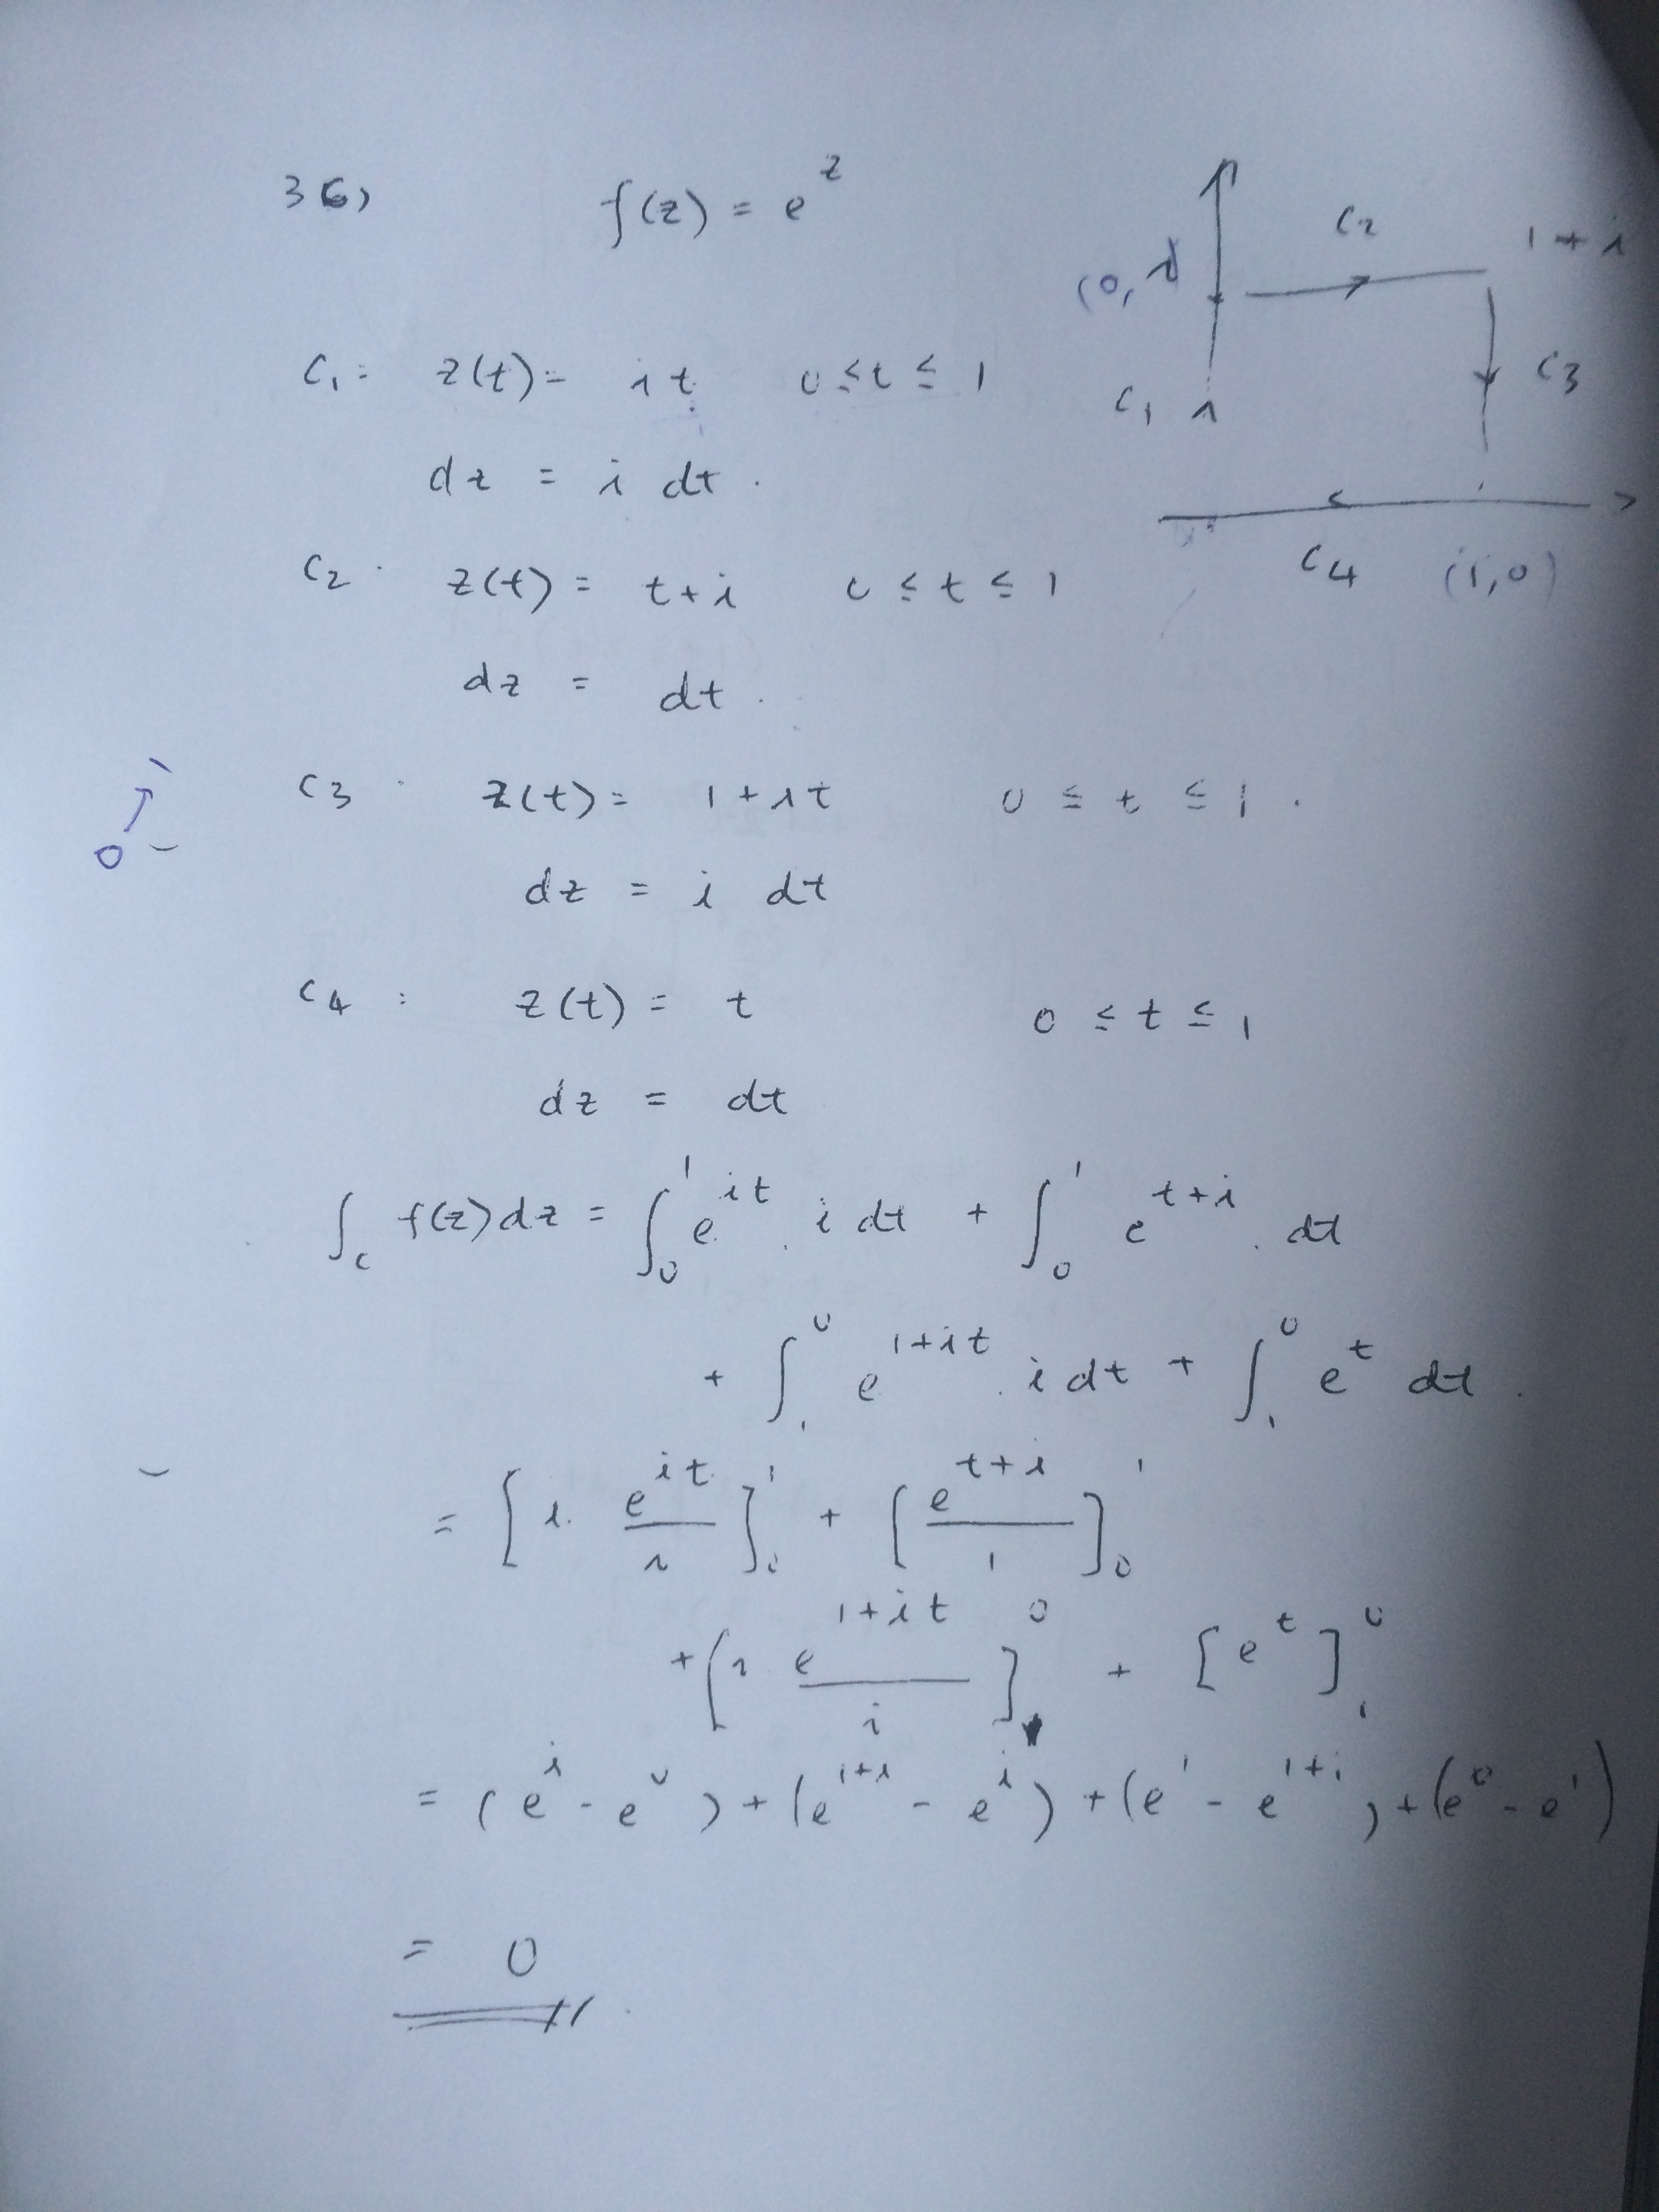 36) f(z) = e^z
C2 1 + i
(0, i)
C1: z(t) = it 0 ≤ t ≤ 1
C1 C3
dz = i dt.
C4 (1,0)
C2: z(t) = t+i 0 ≤ t ≤ 1
dz = dt.
C3: z(t) = 1+it 0 ≤ t ≤ 1.
dz = i dt
C4: z(t) = t 0 ≤ t ≤ 1
dz = dt
∫_c f(z)dz = ∫_0^1 e^{it}. i dt + ∫_0^1 e^{t+i}. dt
+ ∫_1^0 e^{1+it}. i dt + ∫_1^0 e^t dt.
= [i. e^{it}/i]_0^1 + [e^{t+i}/1]_0^1
+ [i e^{1+it}/i]_1^0 + [e^t]_1^0
= (e^i - e^0) + (e^{1+i} - e^i) + (e^1 - e^{1+i}) + (e^0 - e^1)
= 0